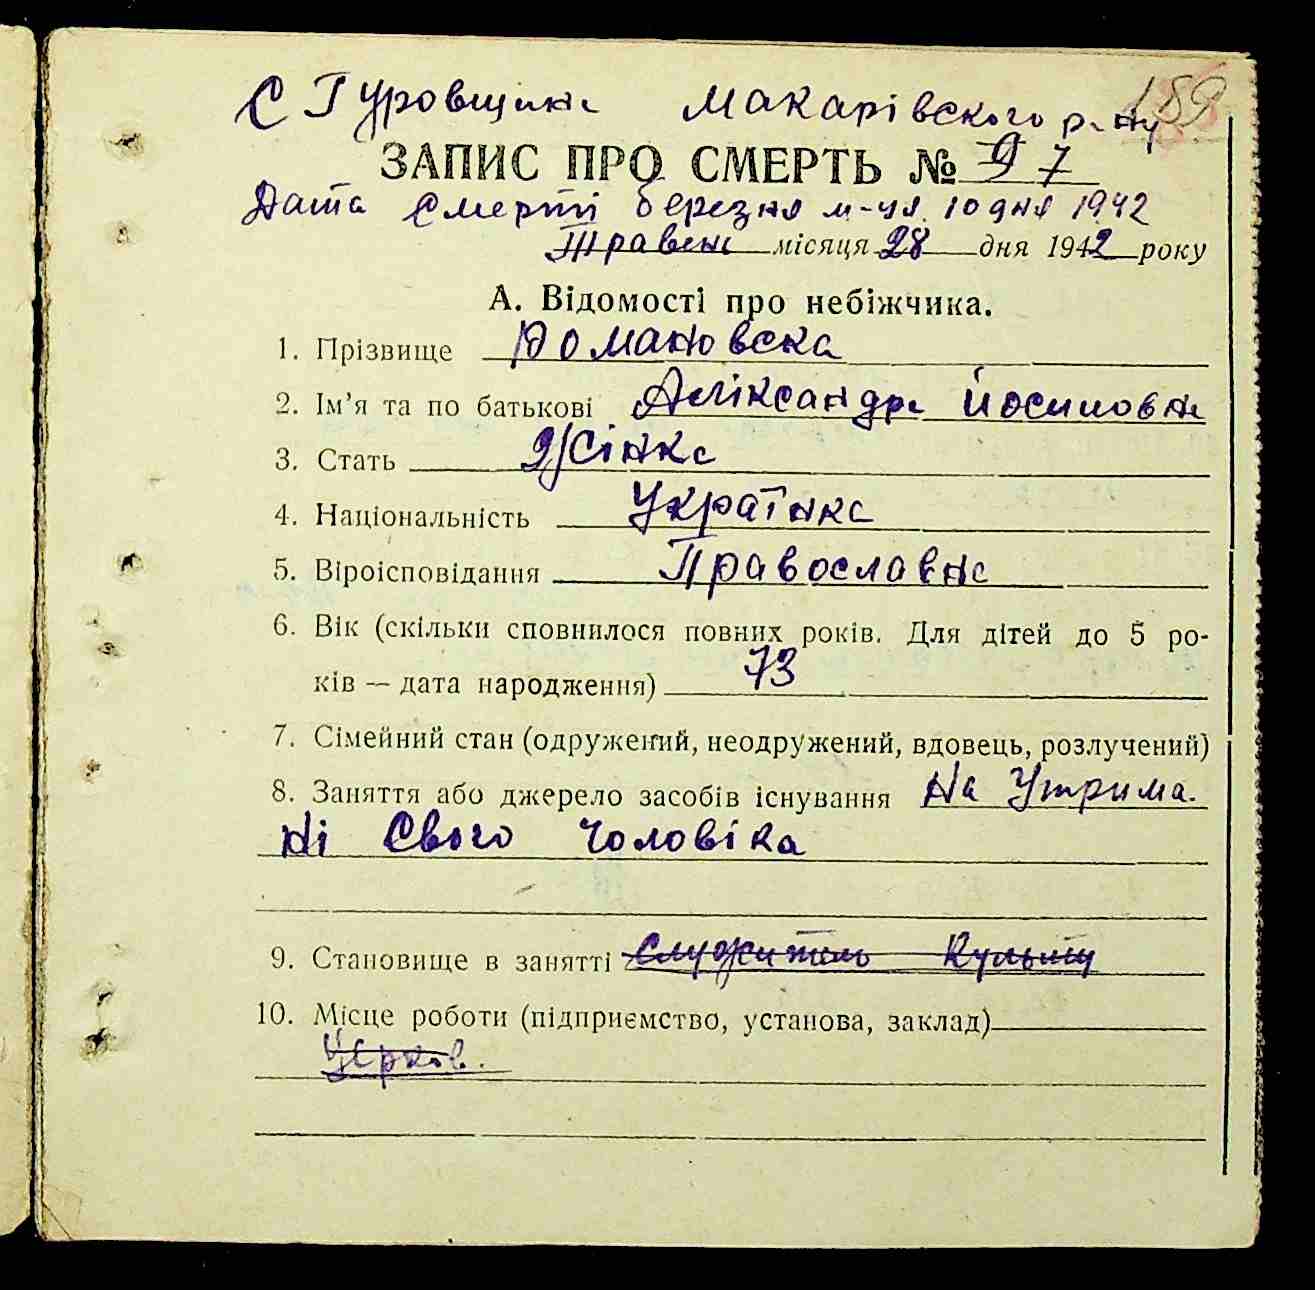 с Гуровщина Макарівского р-ну 189
ЗАПИС ПРО СМЕРТЬ № 97
Дата Смерті березня м-ця 10 дня 1942
Травень місяця 28 дня 1942 року
А. Відомості про небіжчика.
1. Прізвище Романовска
2. Ім'я та по батькові Аліксандра Йосиповна
3. Стать Жінка
4. Національність Українка
5. Віроісповідання Православна
6. Вік (скільки сповнилося повних років. Для дітей до 5 ро-
ків — дата народження) 73
7. Сімейний стан (одружений, неодружений, вдовець, розлучений)
8. Заняття або джерело засобів існування на Утрима.
ні Свого чоловіка
9. Становище в занятті Служитель Культу
10. Місце роботи (підприємство, установа, заклад)
Церков.